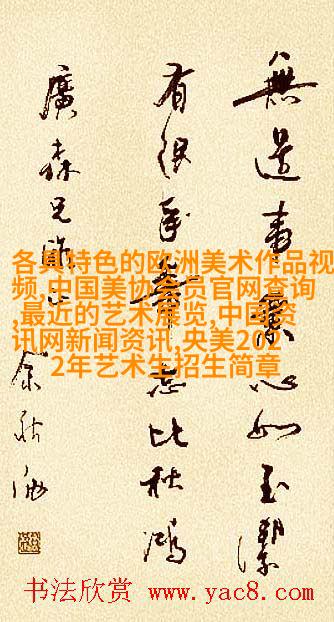 無 事 心如玉潔
有 年 志比秋鴻
廣森兄
余秋雨
各具特色的欧洲美术作品视
频,中国美协会员官网查询
,最近的艺术展览,中国资
讯网新闻资讯,央美202
2年艺术生招生简章
书法欣赏 www.yac8.com